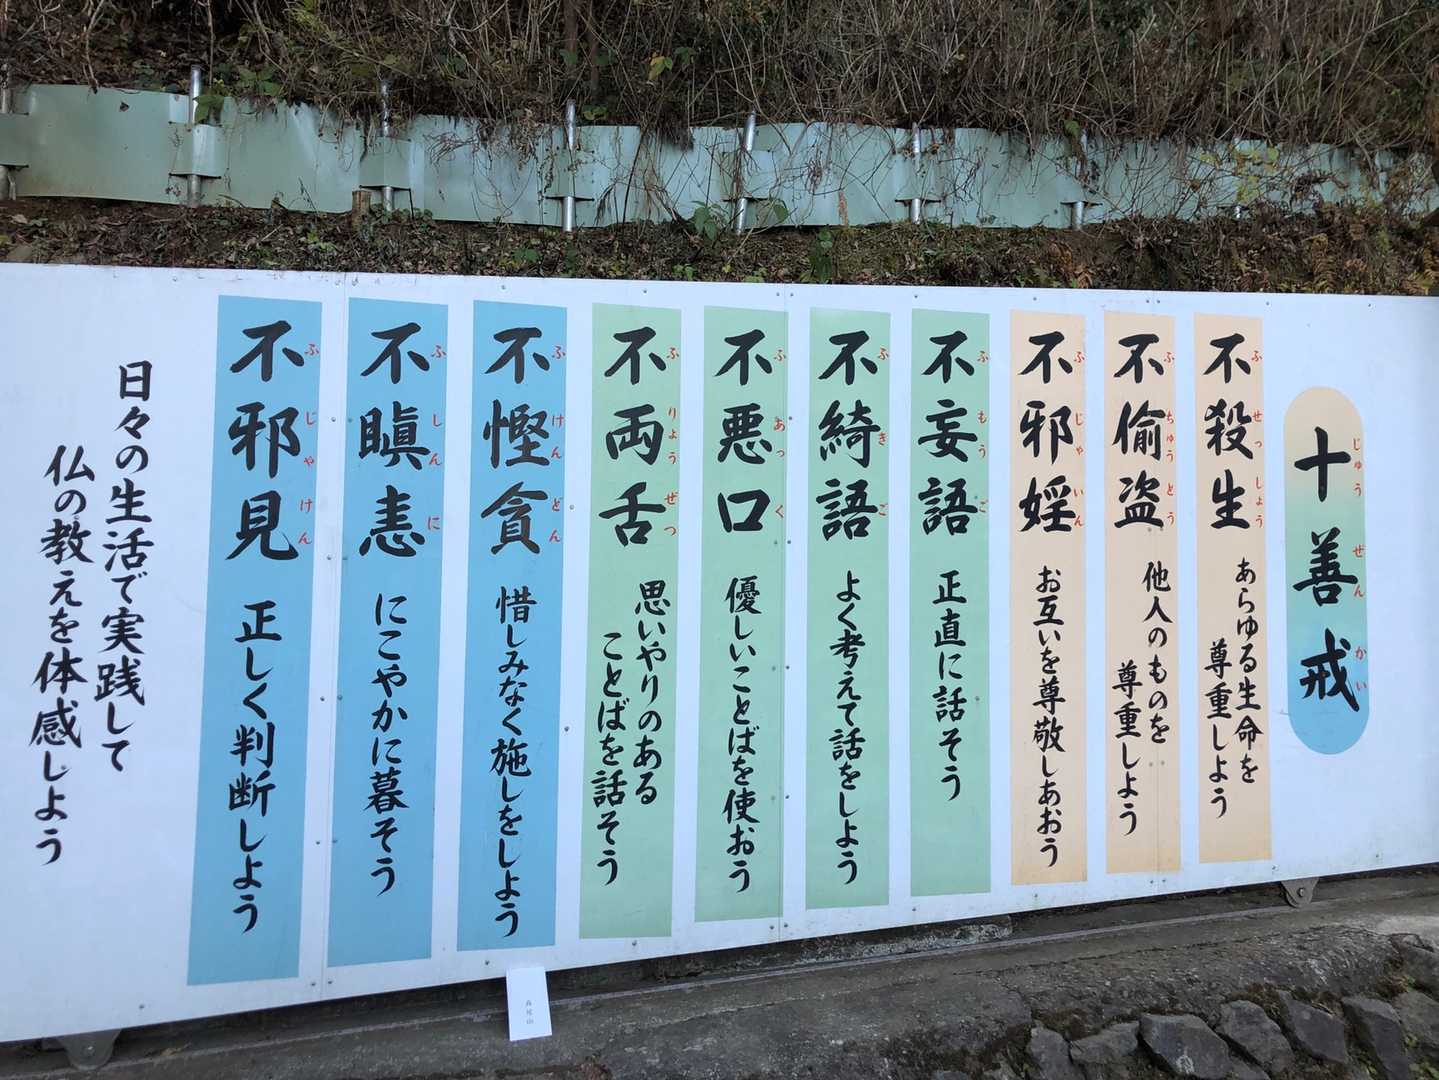 十善戒
じゅうぜんかい
不殺生
ふせっしょう
あらゆる生命を
尊重しよう
不偸盗
ふちゅうとう
他人のものを
尊重しよう
不邪婬
ふじゃいん
お互いを尊敬しあおう
不妄語
ふもうご
正直に話そう
不綺語
ふきご
よく考えて話をしよう
不悪口
ふあっく
優しいことばを使おう
不両舌
ふりょうぜつ
思いやりのある
ことばを話そう
不慳貪
ふけんどん
惜しみなく施しをしよう
不瞋恚
ふしんに
にこやかに暮そう
不邪見
ふじゃけん
正しく判断しよう
日々の生活で実践して
仏の教えを体感しよう
高尾山